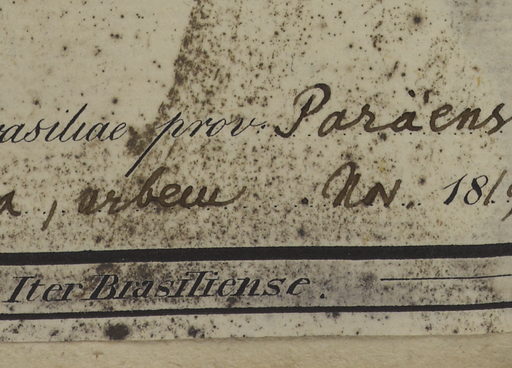 rasiliae prov. Paraens
a, urbem . Nov. 181
Iter Brasiliense.